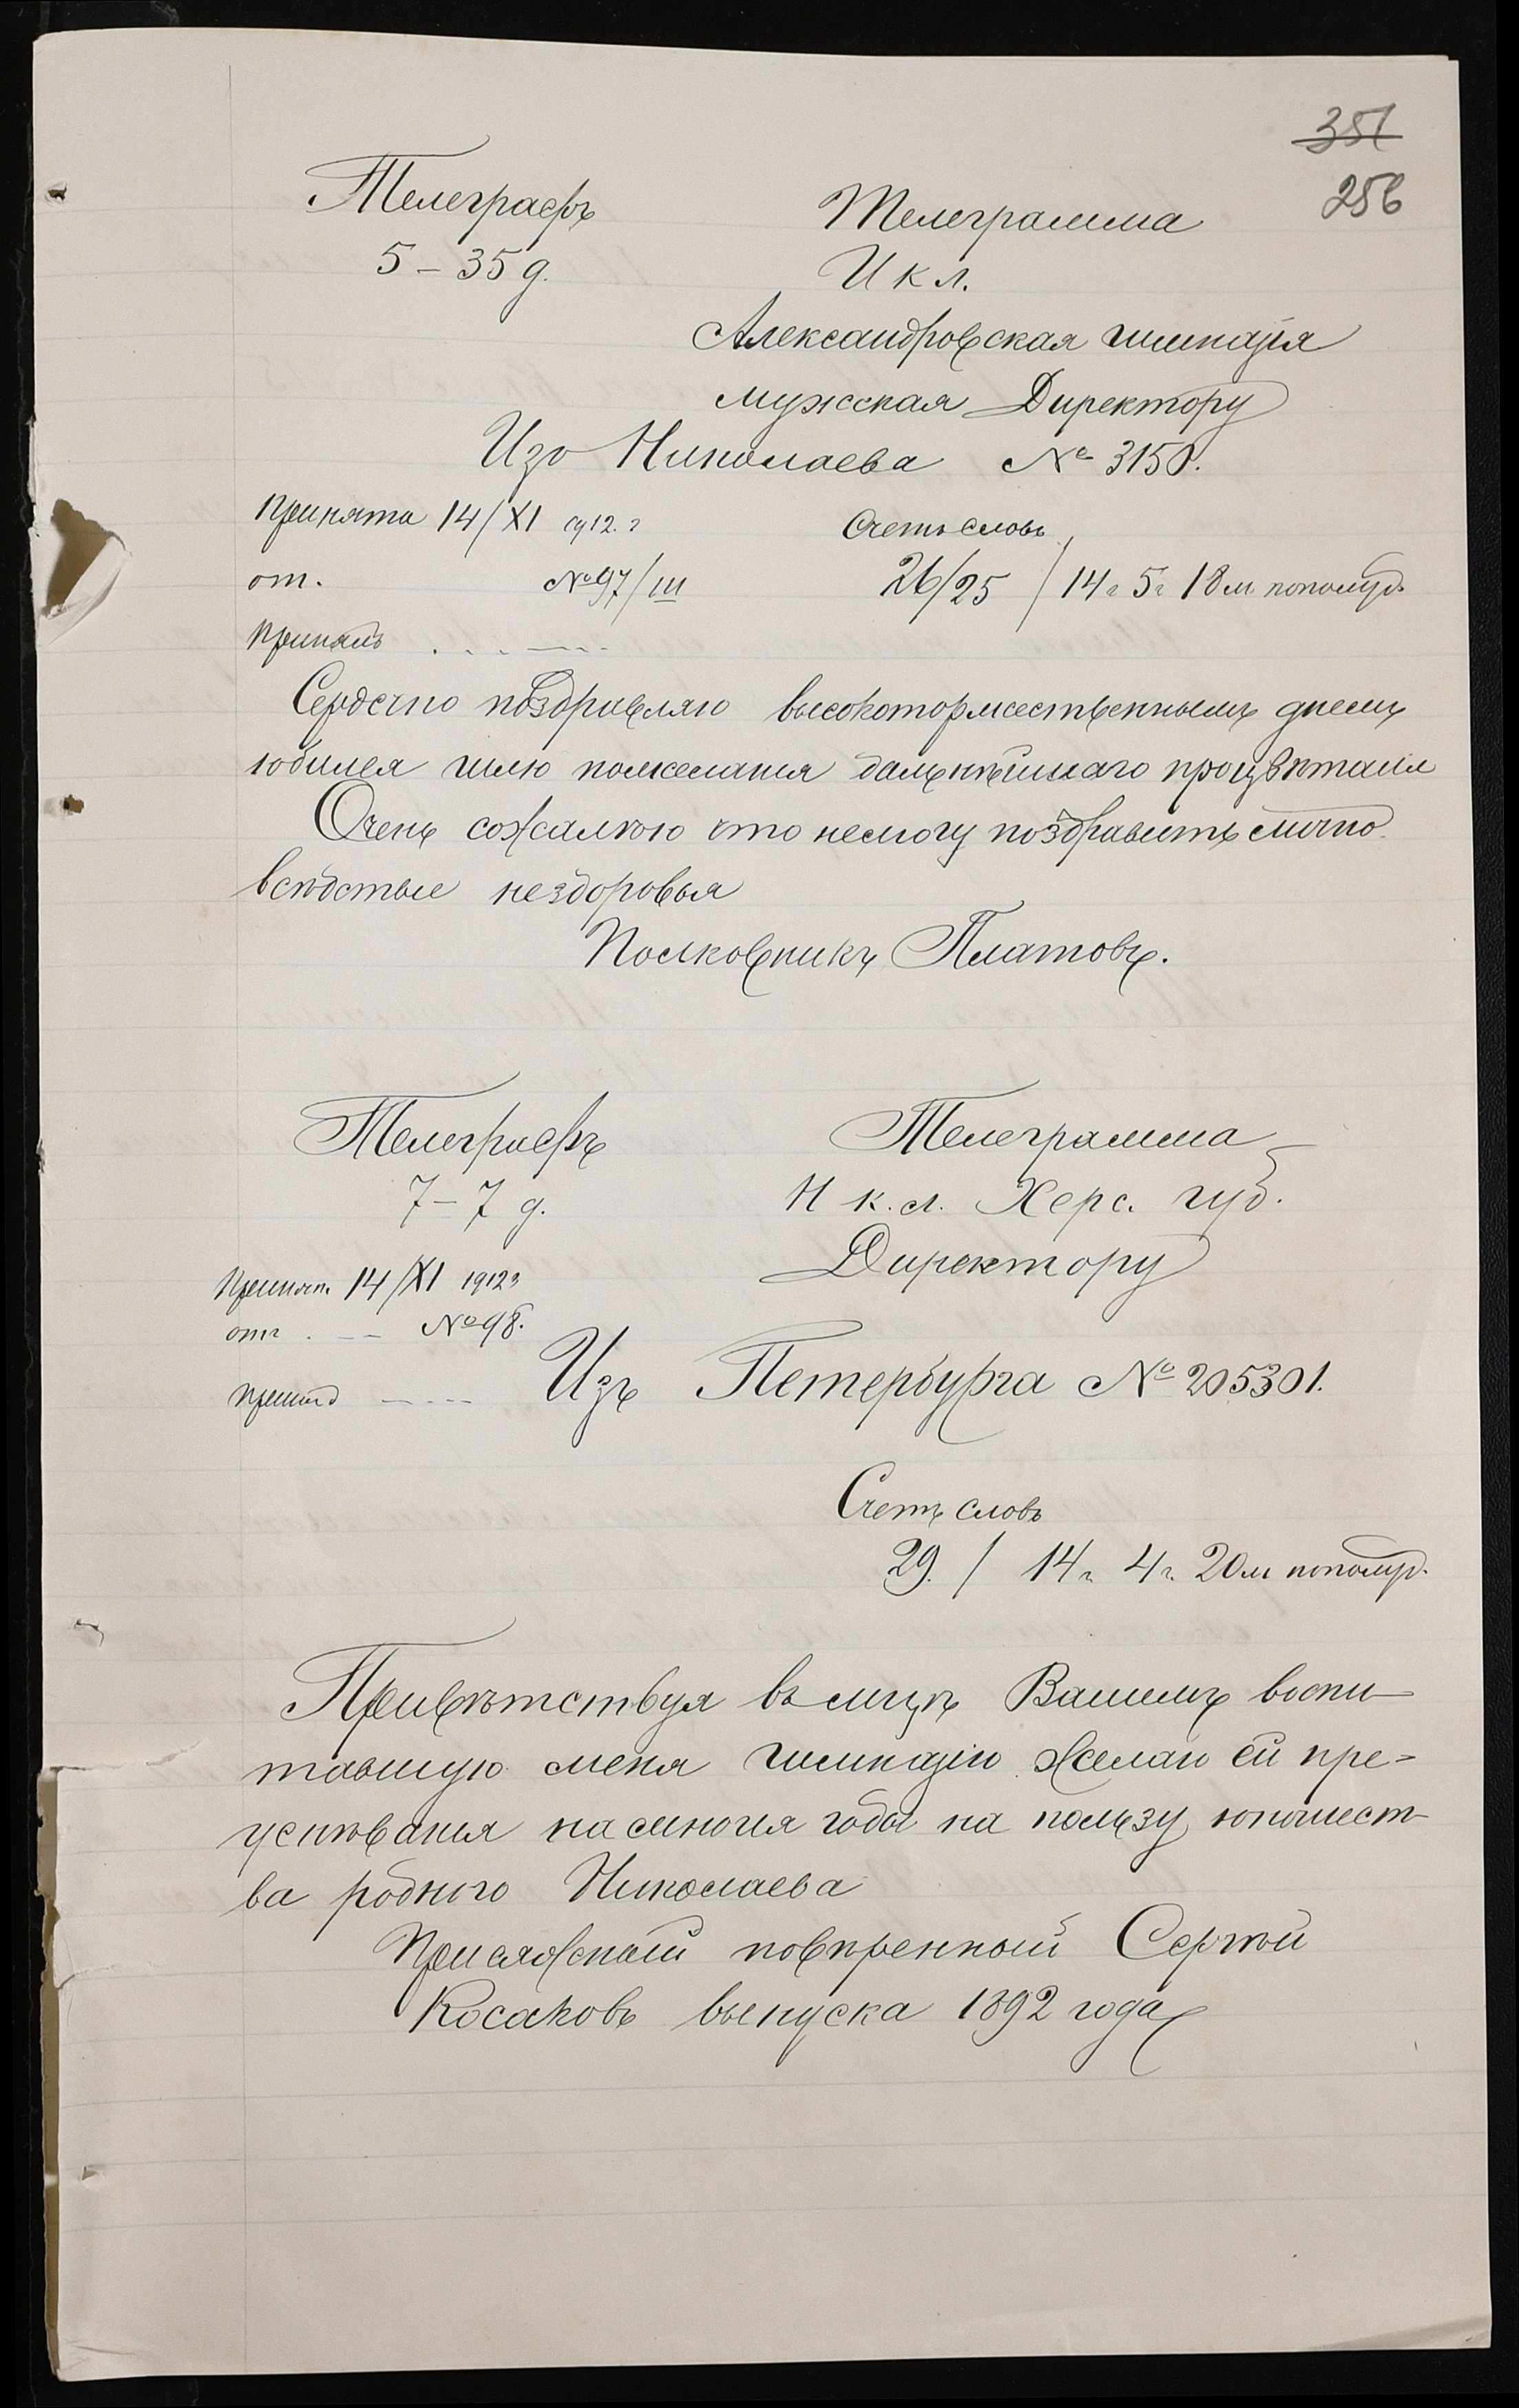 351
256
Телеграфъ
Телеграмма
5–35 д.
Н к л.
Александровская гимназія
мужская Директору
Изъ Николаева № 3150.
Принята 14/XI 912. г
Счетъ словъ
от. №97/III
26/25 / 14 г 5 г 18 м пополуд.
Принялъ . . . — — . .
Сердечно поздравляю высокоторжественнымъ днемъ
юбилея шлю пожелания дальнѣйшаго процвѣтания
Очень сожалѣю что немогу поздравить лично
вслѣдствие нездоровья
Полковникъ Платовъ.
Телеграфъ
Телеграмма
7–7 д.
Н к. л. Херс. губ.
Директору
Принят. 14/XI 1912 г
отъ . — — №98.
Изъ Петербурга № 205301.
Принялъ — . . —
Счетъ словъ
29. / 14 г 4 г. 20 м пополуд.
Привѣтствуя въ лицѣ Вашемъ воспи–
тавшую меня гимназію желаю ей пре=
успѣвания на многия годы на пользу юношест–
ва родного Николаева
Присяжный повѣренный Сергѣй
Косаковъ выпуска 1892 года